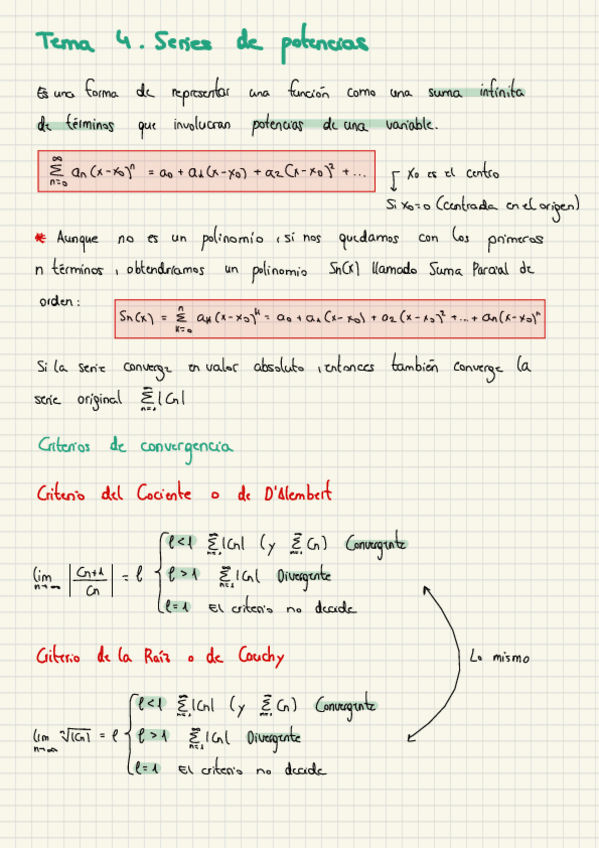 Tema 4. Series de potencias
Es una forma de representar una función como una suma infinita
de términos que involucran potencias de una variable.
∞∑n=0 an(x-x0)^n = a0 + a1(x-x0) + a2(x-x0)² + ...
x0 es el centro
Si x0=0 (centrada en el origen)
* Aunque no es un polinomio, si nos quedamos con los primeros
n términos, obtendríamos un polinomio Sn(x) llamado Suma Parcial de
orden:
Sn(x) = n∑k=0 ak(x-x0)^k = a0 + a1(x-x0) + a2(x-x0)² + ... + an(x-x0)^n
Si la serie converge en valor absoluto, entonces también converge la
serie original ∞∑n=1 |Cn|
Criterios de convergencia
Criterio del Cociente o de D'Alembert
l<1 ∞∑n=1 |Cn| (y ∞∑n=1 Cn) Convergente
lim n→∞ |Cn+1/Cn| = l
l>1 ∞∑n=1 |Cn| Divergente
l=1 El criterio no decide
Criterio de la Raíz o de Cauchy
Lo mismo
l<1 ∞∑n=1 |Cn| (y ∞∑n=1 Cn) Convergente
lim n→∞ ⁿ√|Cn| = l
l>1 ∞∑n=1 |Cn| Divergente
l=1 El criterio no decide